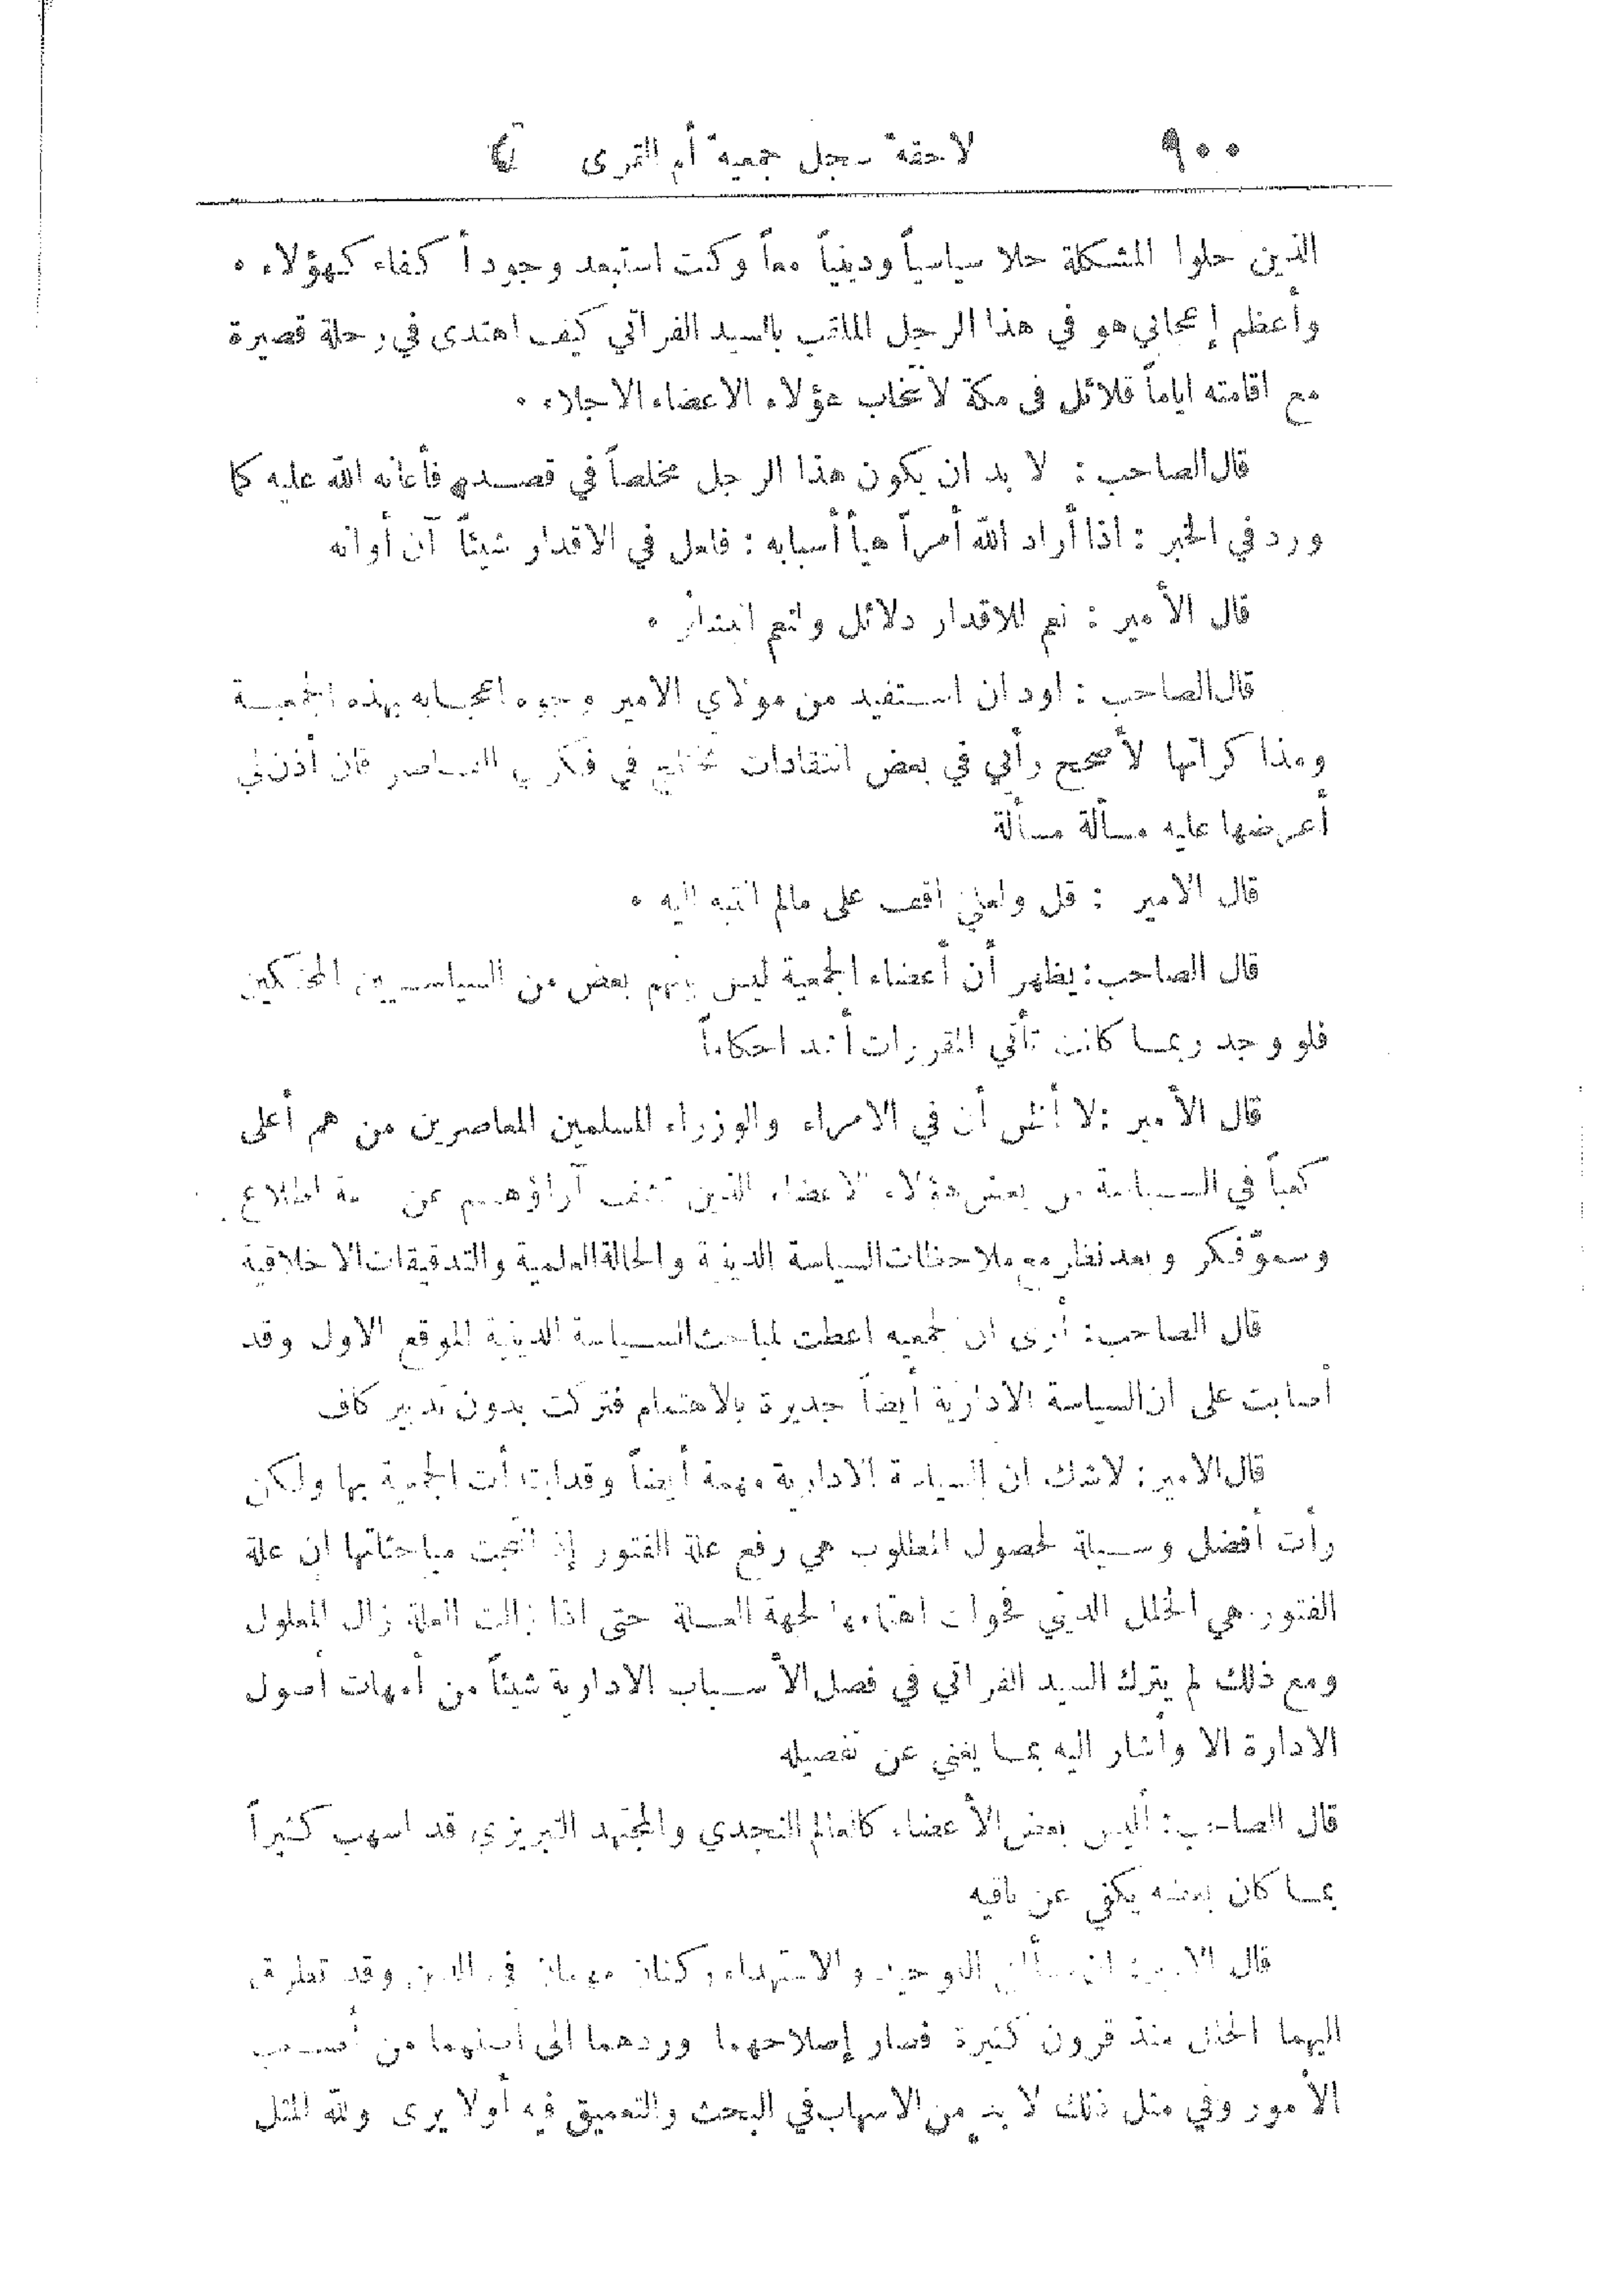 ٩٠٠ لاحقة سجل جمعية أم القرى
الذين حلوا المشكلة حلا سياسياً ودينياً معاً وكنت استبعد وجود أ كفاء كهؤلاء .
وأعظم إعجابي هو في هذا الرجل الملقب بالسيد الفراتي كيف اهتدى في رحلة قصيرة
مع اقامته اياماً قلائل في مكة لانتخاب هؤلاء الاعضاء الاجلاء .
قال الصاحب : لا بد ان يكون هذا الرجل مخلصاً في قصده فأعانه الله عليه كما
ورد في الخبر : اذا أراد الله أمراً هيأ أسبابه : فلعل في الاقدار شيئاً آن أوانه
قال الأمير : نعم للاقدار دلائل ولنعم
قال الصاحب : اود ان استفيد من مولاي الامير وجوه اعجابه بهذه الجمعية
ومذا كراتها لأصحح رأيي في بعض انتقادات تختلج في فكري القاصر فان أذن لي
أعرضها عليه مسألة مسألة
قال الامير : قل ولعلي اقف على مالم انتبه اليه .
قال الصاحب : يظهر أن أعضاء الجمعية ليس بينهم بعض من السياسيين المحنكين
فلو وجد ربما كانت تأتي المقررات أشد احكاماً
قال الأمير : لا أظن أن في الامراء والوزراء المسلمين المعاصرين من هم أعلى
كعباً في السياسة من بعض هؤلاء الاعضاء الذين تشف آراؤهم عن سعة اطلاع
وسموّ فكر وبعد نظر مع ملاحظات السياسة الدينية والحالة العلمية والتدقيقات الاخلاقية
قال الصاحب : أرى ان الجمعية اعطت لمباحث السياسة الدينية الموقع الاول وقد
اصابت على ان السياسة الادارية أيضاً جديرة بالاهتمام فتركت بدون تدبير كاف
قال الامير : لاشك ان السياسة الادارية مهمة أيضاً وقد ابتدأت الجمعية بها ولكن
رأت أفضل وسيلة لحصول المطلوب هي رفع علة الفتور إذ انتجت مباحثاتها ان علة
الفتور هي الخلل الديني فحولت اهتمامها لجهة العلة حتى اذا زالت العلة زال المعلول
ومع ذلك لم يترك السيد الفراتي في فصل الأسباب الادارية شيئاً من أمهات اصول
الادارة الا وأشار اليه بما يغني عن تفصيله
قال الصاحب : أليس بعض الأعضاء كالعالم النجدي والمجتهد التبريزي قد اسهب كثيراً
بما كان بعضه يكفي عن باقيه
قال الامير : ان مسألتي التوحيد والاستهداء ركنان مهمان في الدين وقد تطرق
اليهما الخلل منذ قرون كثيرة فصار إصلاحهما وردهما الى اصلهما من أصعب
الأمور وفي مثل ذلك لا بد من الاسهاب في البحث والتعميق فيه أولا يرى ولله المثل